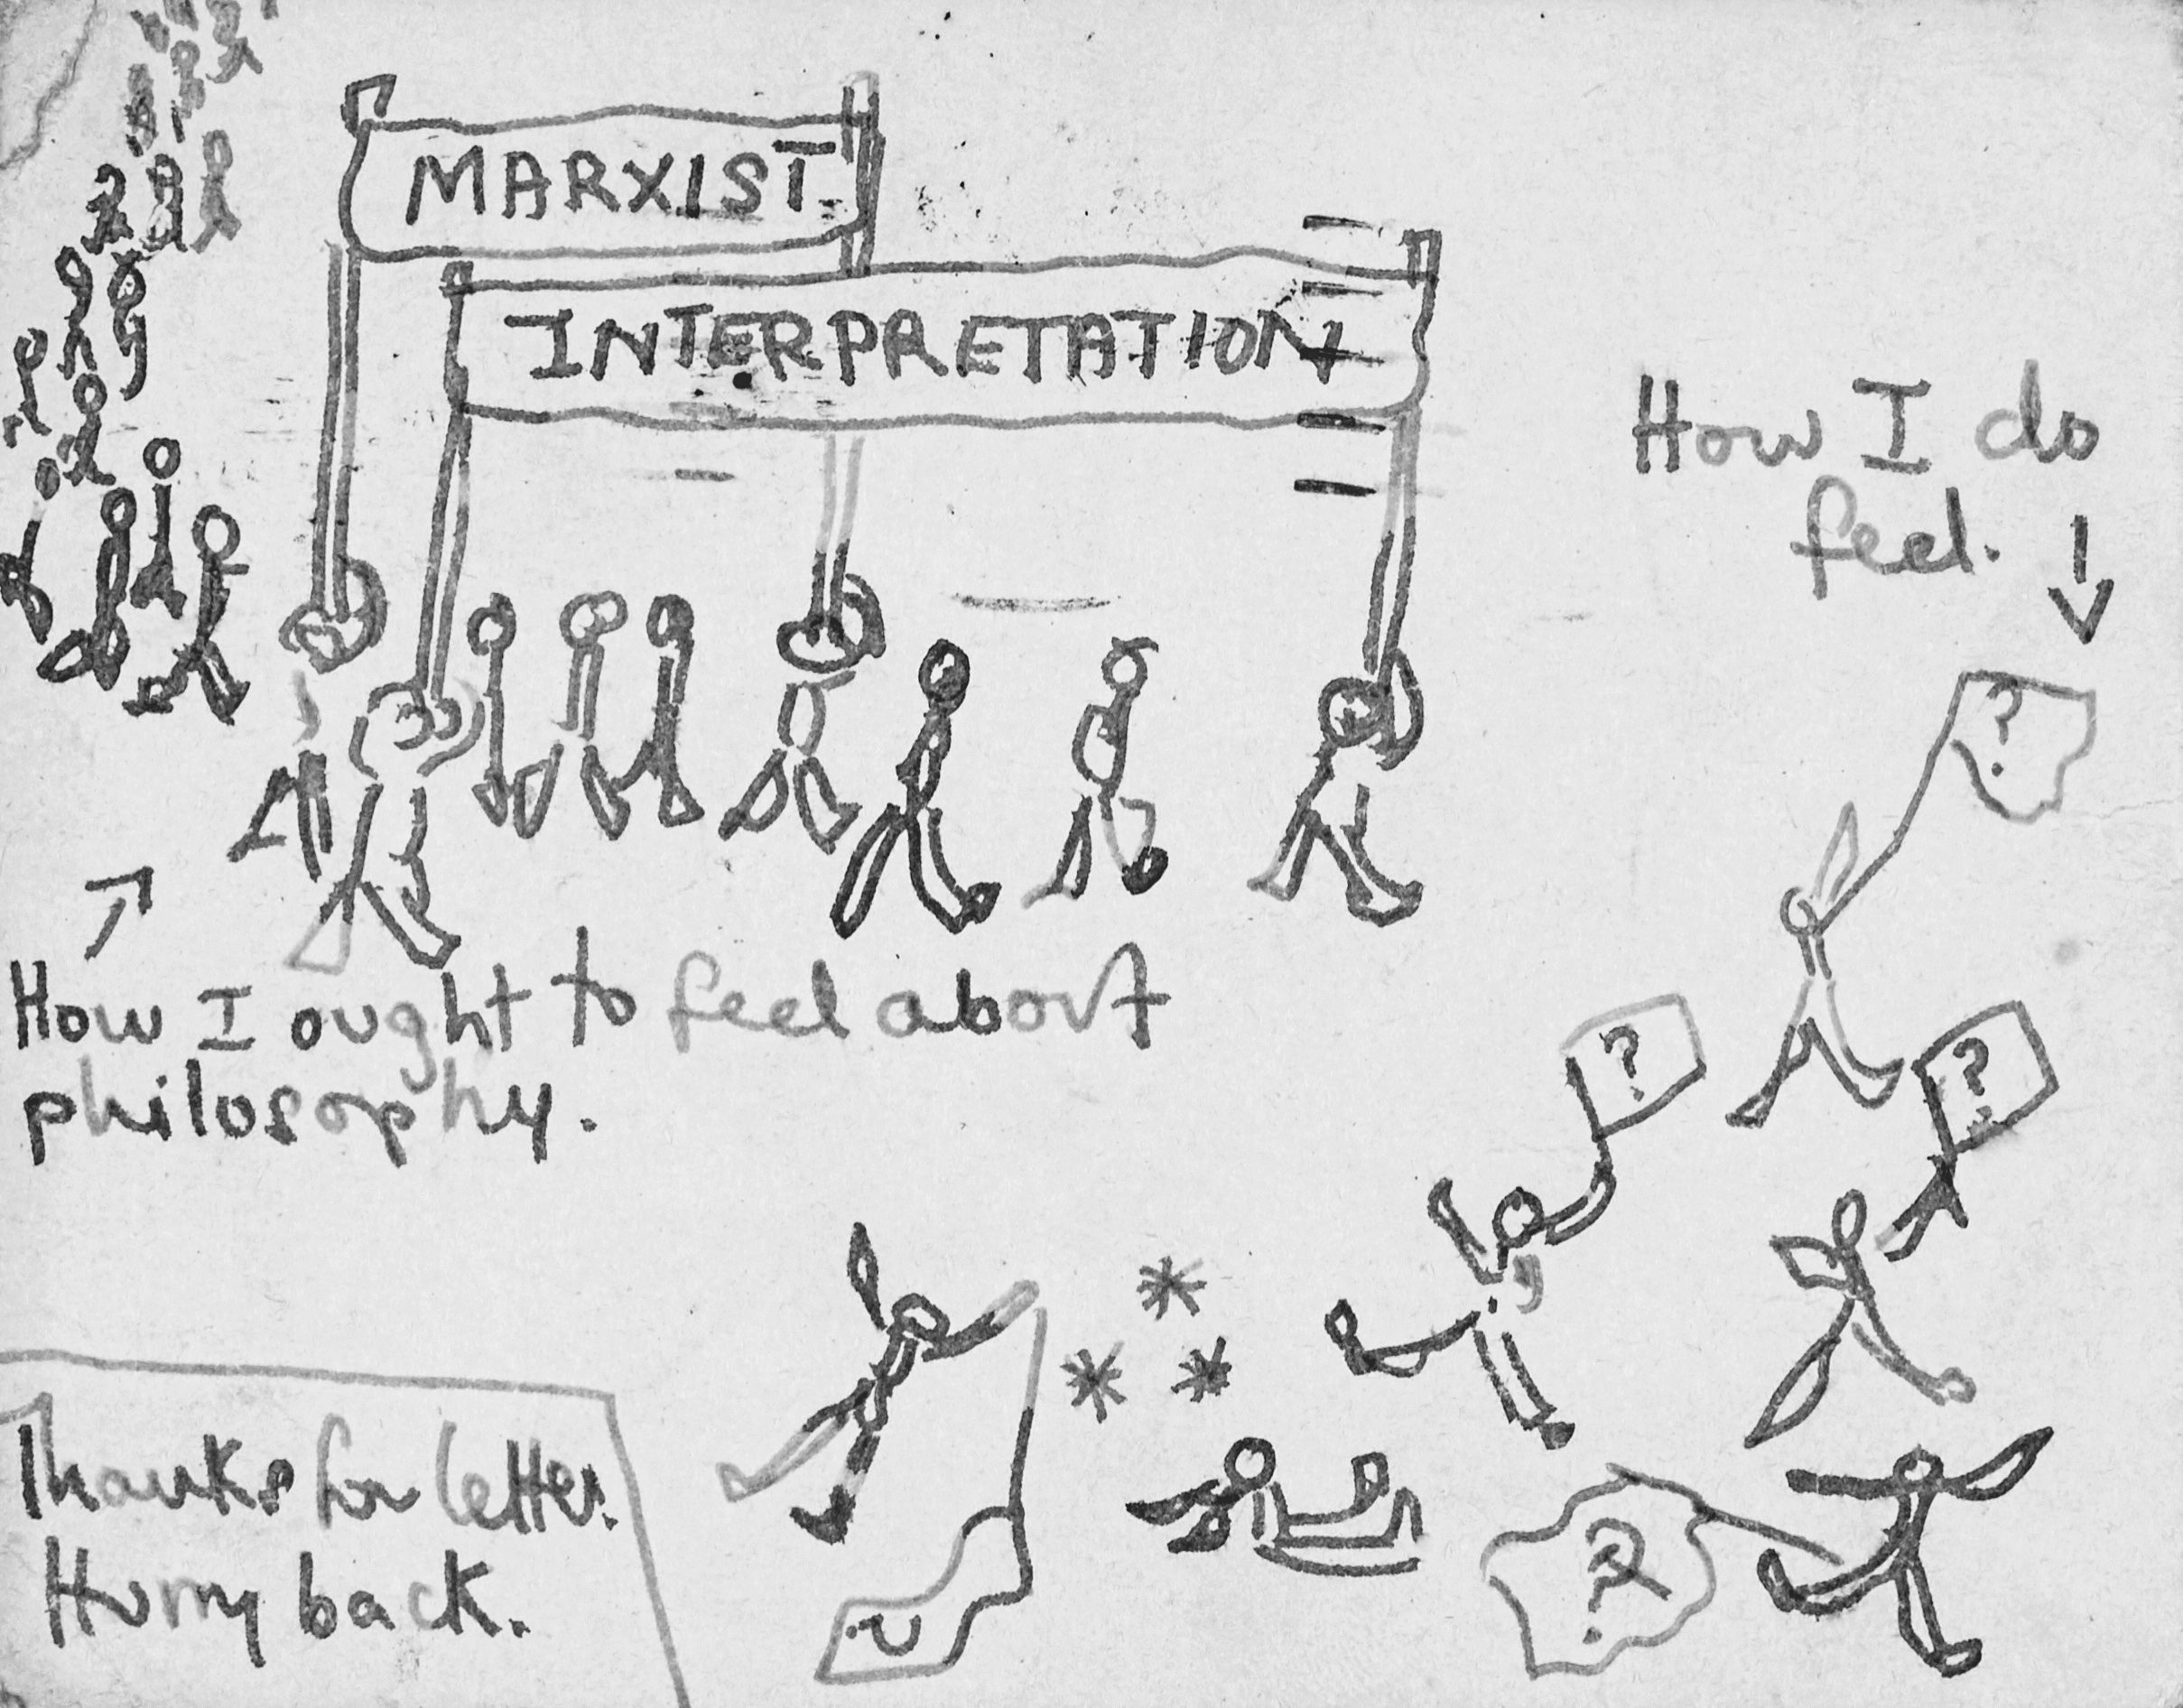 MARXIST
INTERPRETATION
How I do
feel.
?
?
?
How I ought to feel about
philosophy.
?
?
Thanks for letter.
Hurry back.